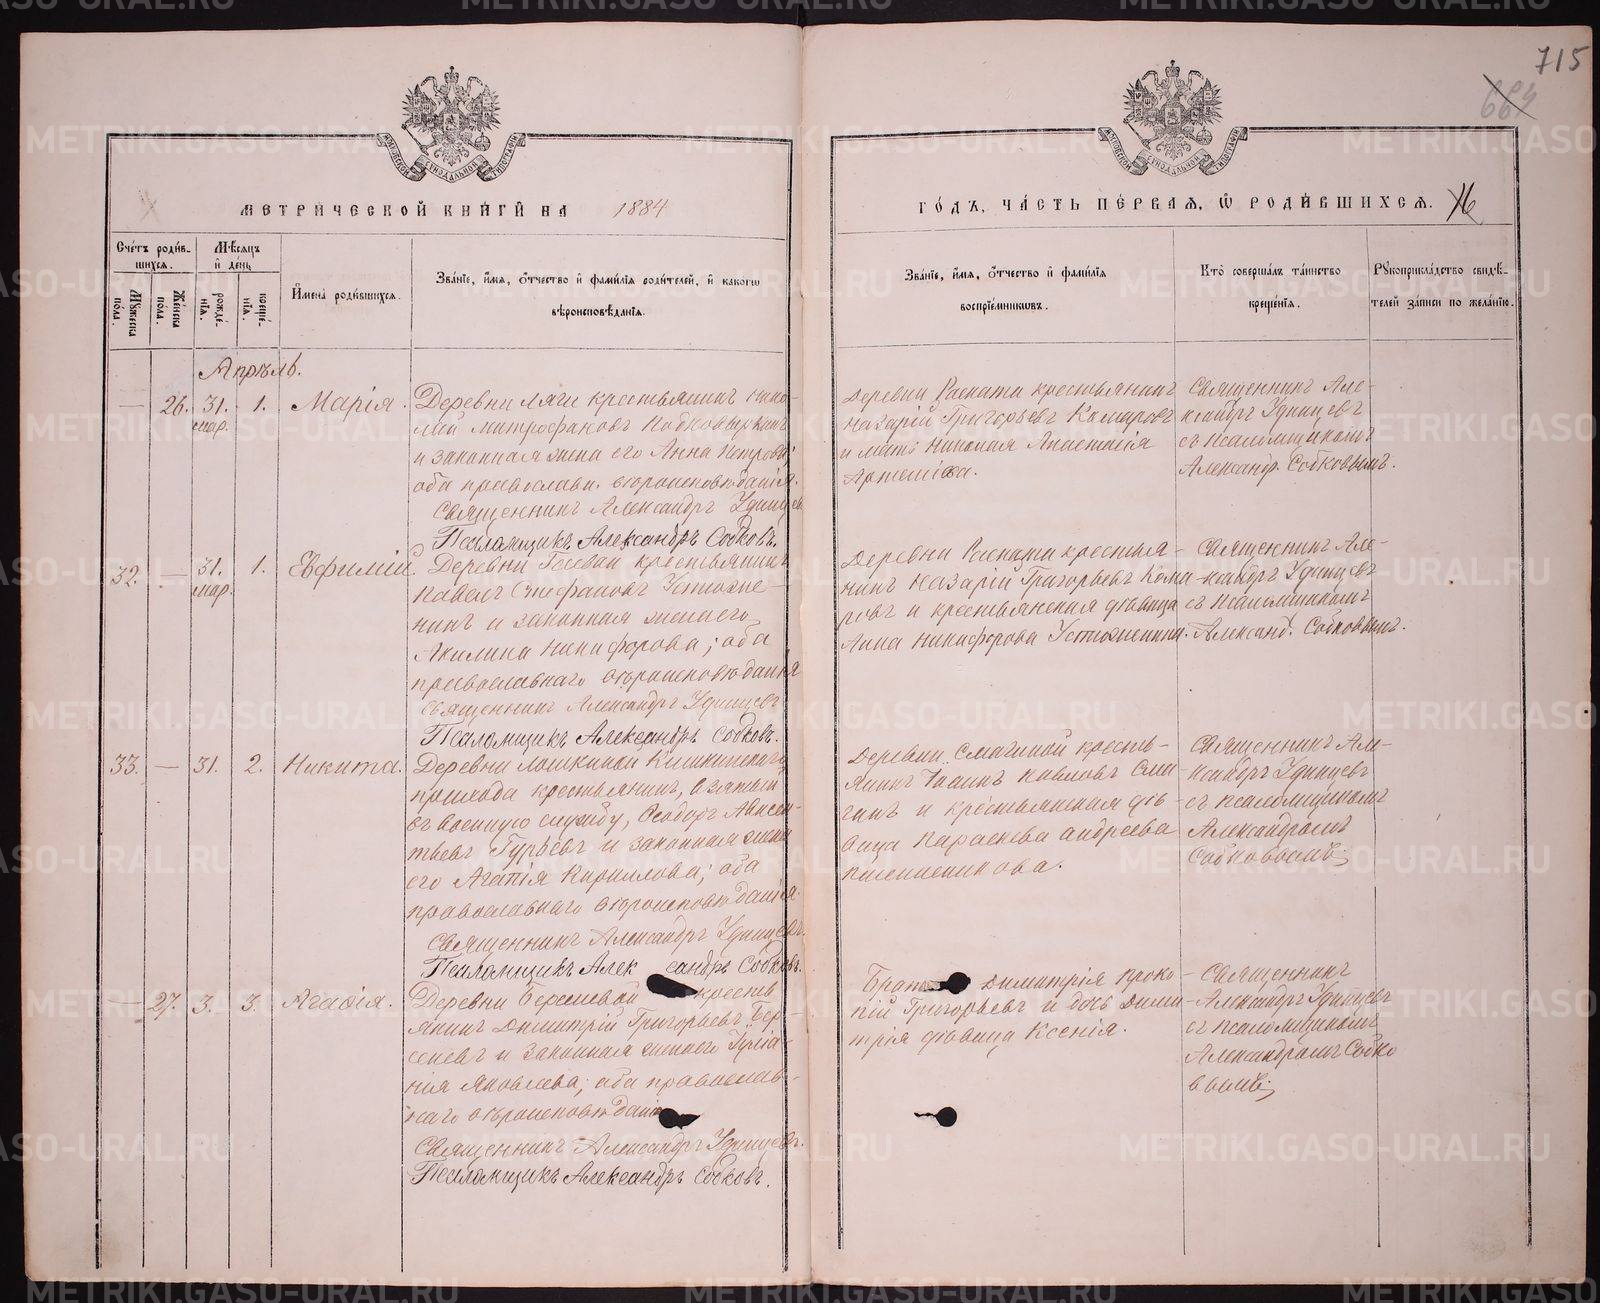 715
664
МЕТРИЧЕСКОЙ КНИГИ НА 1884
ГОДЪ, ЧАСТЬ ПЕРВАЯ, Ѡ РОДИВШИХСЯ. 16
Счетъ родив-
шихся.
Мужеска пола.
Женска пола.
Мѣсяцъ
и день
рожде-
нія.
креще-
нія.
Имена родившихся.
Званіе, имя, отчество и фамилія родителей, и какогѡ
вѣроисповѣданія.
Званіе, имя, отчество и фамилія
воспріемникѡвъ.
Кто совершалъ таинство
крещенія.
Рукоприкладство свидѣ-
телей записи по желанію.
Апрѣль.
— 26. 31. мар. 1. Марія.
Деревни Ляги крестьянинъ Нико-
лай Митрофановъ
и законная жена его Анна Петрова;
оба православн. вѣроисповѣданія.
Священникъ Александръ Удинцевъ
Псаломщикъ Александръ Собковъ.
Деревни Раската крестьянинъ
Назарій Григорьевъ Комаровъ
и мать Николая Анастасія
Артемьева.
Священникъ Але-
ксандръ Удинцевъ
съ псаломщикомъ
Александр. Собковымъ.
32. — 31. мар. 1. Евфимій.
Деревни Гаевой крестьянинъ
Павелъ Стефановъ Устюже-
нинъ и законная жена его
Акилина Никифорова; оба
православнаго вѣроисповѣданія
Священникъ Александръ Удинцевъ
Псаломщикъ Александръ Собковъ.
Деревни Раската крестья-
нинъ Назарій Григорьевъ Кома-
ровъ и крестьянская дѣвица
Анна Никифорова Устюженина.
Священникъ Але-
ксандръ Удинцевъ
съ псаломщикомъ
Александ. Собковымъ.
33. — 31. 2. Никита.
Деревни Лошкиной
прихода крестьянинъ, взятый
въ военную службу, Ѳеодоръ Авксен-
тьевъ Гурьевъ и законная жена
его Агапія Кириллова; оба
православнаго вѣроисповѣданія.
Священникъ Александръ Удинцевъ.
Псаломщикъ Александръ Собковъ.
Деревни Смагиной кресть-
янинъ Іоаннъ Павловъ Сма-
гинъ и крестьянская дѣ-
вица Параскева Андреева
Пшеничникова.
Священникъ Але-
ксандръ Удинцевъ
съ псаломщикомъ
Александромъ
Собковымъ;
— 27. 3. 3. Агафія.
Деревни Берсеневой кресть
янинъ Димитрій Григорьевъ Бер-
сеневъ и законная жена его Іуліа-
нія Яковлева; оба православ-
наго вѣроисповѣданія
Священникъ Александръ Удинцевъ.
Псаломщикъ Александръ Собковъ.
Братъ Димитрія Проко-
пій Григорьевъ и дочь Дими-
трія дѣвица Ксенія.
Священникъ
Александръ Удинцевъ
съ псаломщикомъ
Александромъ Собко
вымъ;
METRIKI.GASO-URAL.RU